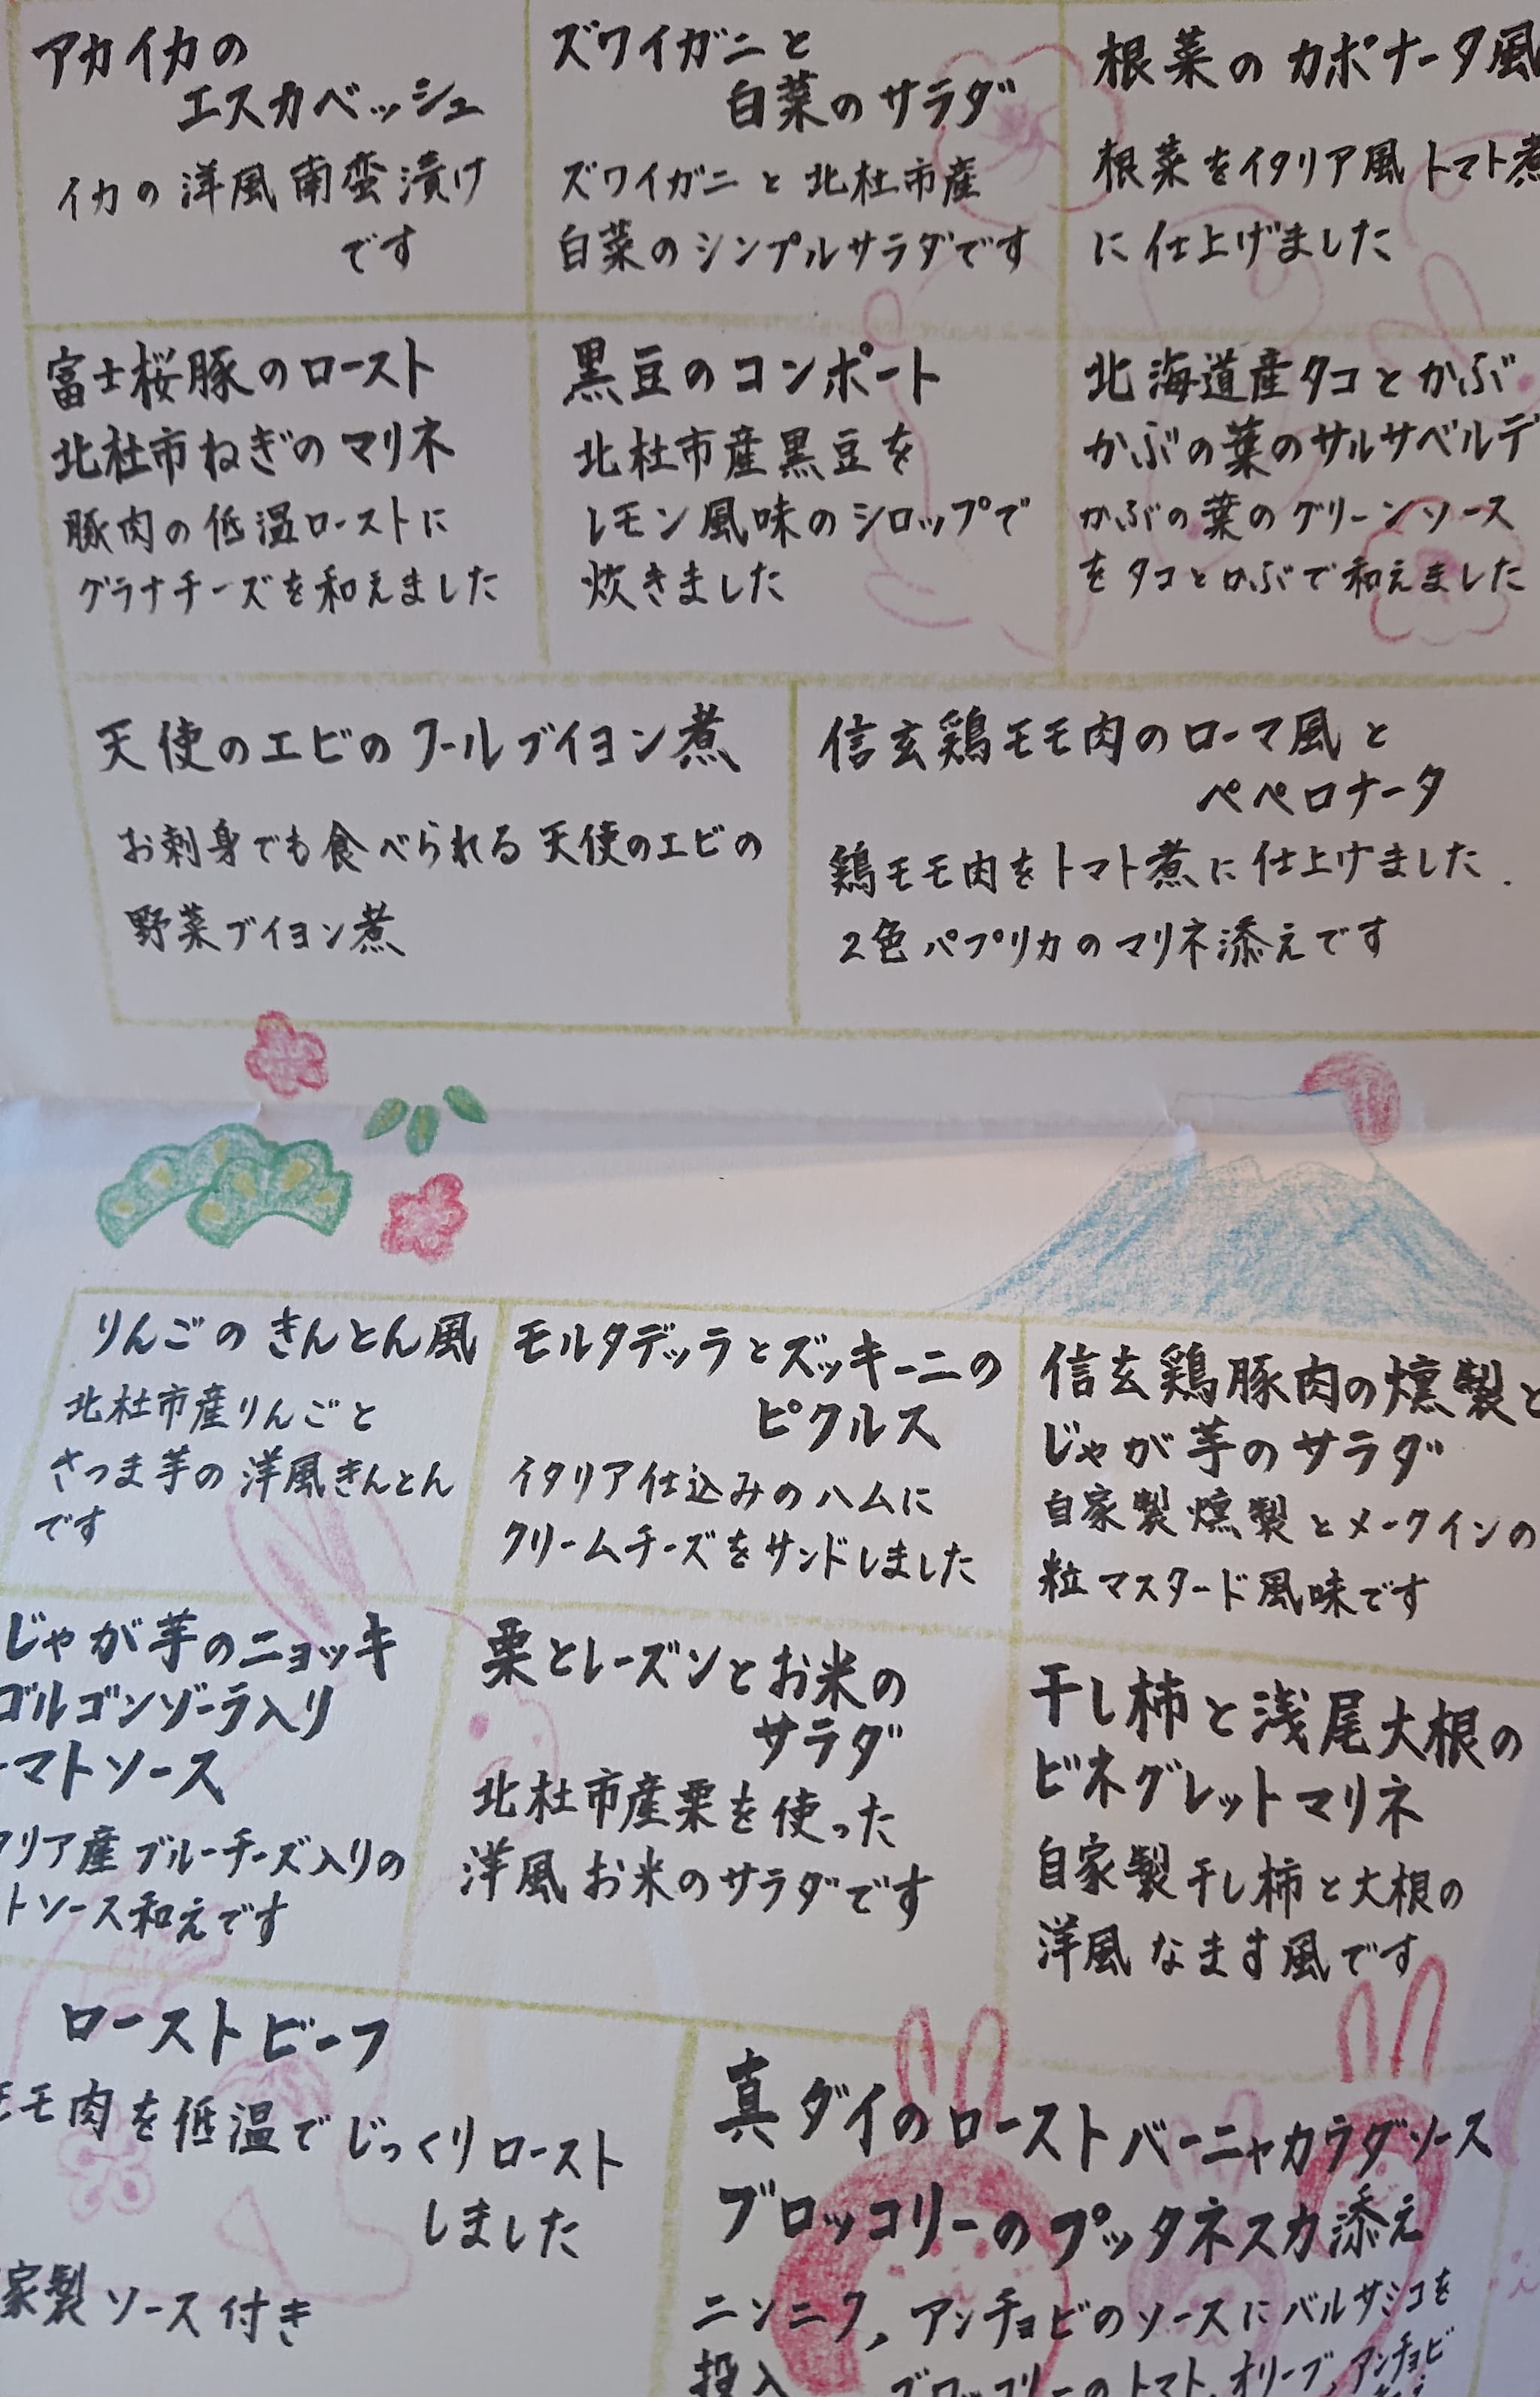 アカイカの
エスカベッシュ
イカの洋風南蛮漬け
です
ズワイガニと
白菜のサラダ
ズワイガニと北杜市産
白菜のシンプルサラダです
根菜のカポナータ風
根菜をイタリア風トマト煮
に仕上げました
富士桜豚のロースト
北杜市ねぎのマリネ
豚肉の低温ローストに
グラナチーズを和えました
黒豆のコンポート
北杜市産黒豆を
レモン風味のシロップで
炊きました
北海道産タコとかぶ
かぶの葉のサルサベルデ
かぶの葉のグリーンソース
をタコとかぶで和えました
天使のエビのクールブイヨン煮
お刺身でも食べられる天使のエビの
野菜ブイヨン煮
信玄鶏モモ肉のローマ風と
ペペロナータ
鶏モモ肉をトマト煮に仕上げました.
2色パプリカのマリネ添えです
りんごのきんとん風
北杜市産りんごと
さつま芋の洋風きんとん
です
モルタデッラとズッキーニの
ピクルス
イタリア仕込みのハムに
クリームチーズをサンドしました
信玄鶏豚肉の燻製と
じゃが芋のサラダ
自家製燻製とメークインの
粒マスタード風味です
じゃが芋のニョッキ
ゴルゴンゾーラ入り
マトソース
タリア産ブルーチーズ入りの
トソース和えです
栗とレーズンとお米の
サラダ
北杜市産栗を使った
洋風お米のサラダです
干し柿と浅尾大根の
ビネグレットマリネ
自家製干し柿と大根の
洋風なます風です
ローストビーフ
モモ肉を低温でじっくりロースト
しました
家製ソース付き
真ダイのローストバーニャカウダソース
ブロッコリーのプッタネスカ添え
ニンニク,アンチョビのソースにバルサミコを
投入 ブロッコリーのトマト,オリーブ,アンチョビ